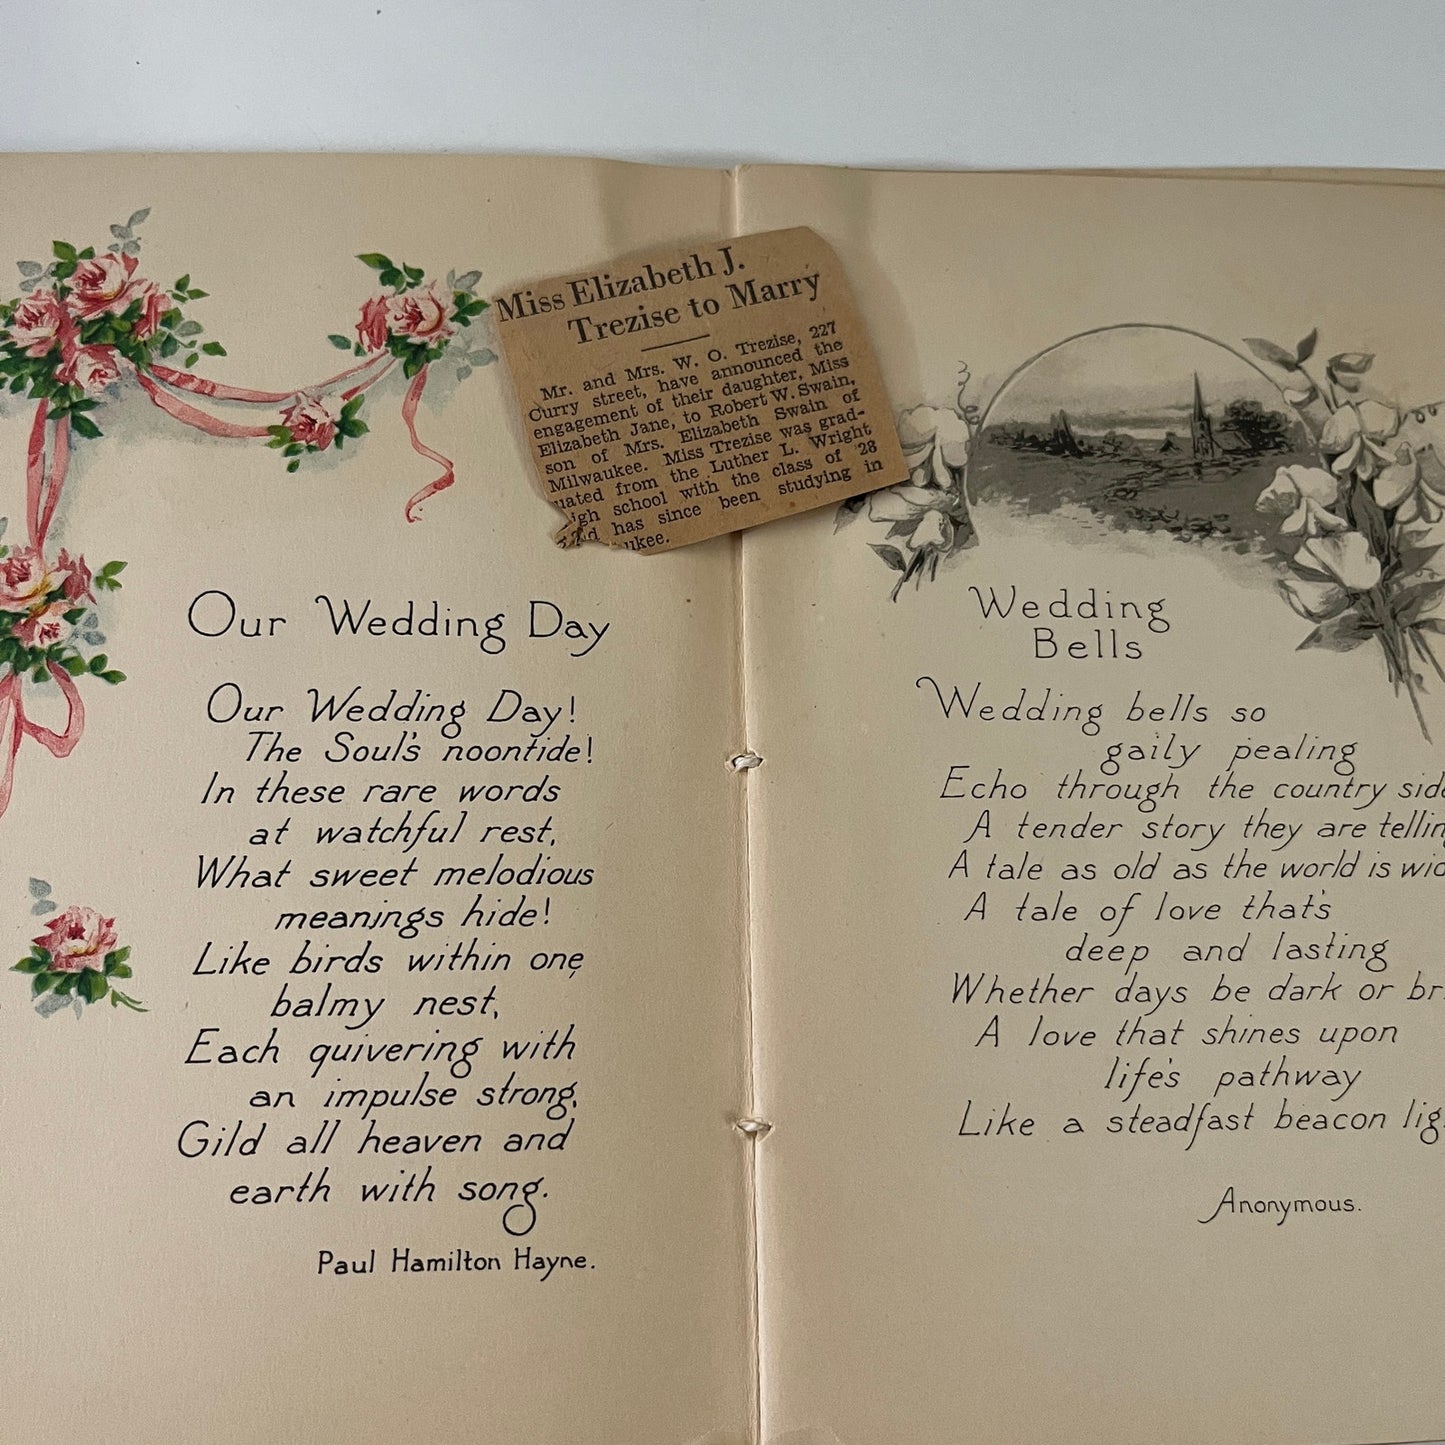 Miss Elizabeth J.
Trezise to Marry
Mr. and Mrs. W. O. Trezise, 227
Curry street, have announced the
engagement of their daughter, Miss
Elizabeth Jane, to Robert W. Swain,
son of Mrs. Elizabeth Swain of
Milwaukee. Miss Trezise was grad-
uated from the Luther L. Wright
igh school with the class of '28
has since been studying in
ukee.
Our Wedding Day
Our Wedding Day!
The Soul's noontide!
In these rare words
at watchful rest,
What sweet melodious
meanings hide!
Like birds within one
balmy nest,
Each quivering with
an impulse strong,
Gild all heaven and
earth with song.
Paul Hamilton Hayne.
Wedding
Bells
Wedding bells so
gaily pealing
Echo through the country side
A tender story they are telling
A tale as old as the world is wid
A tale of love that's
deep and lasting
Whether days be dark or br
A love that shines upon
life's pathway
Like a steadfast beacon lig
Anonymous.